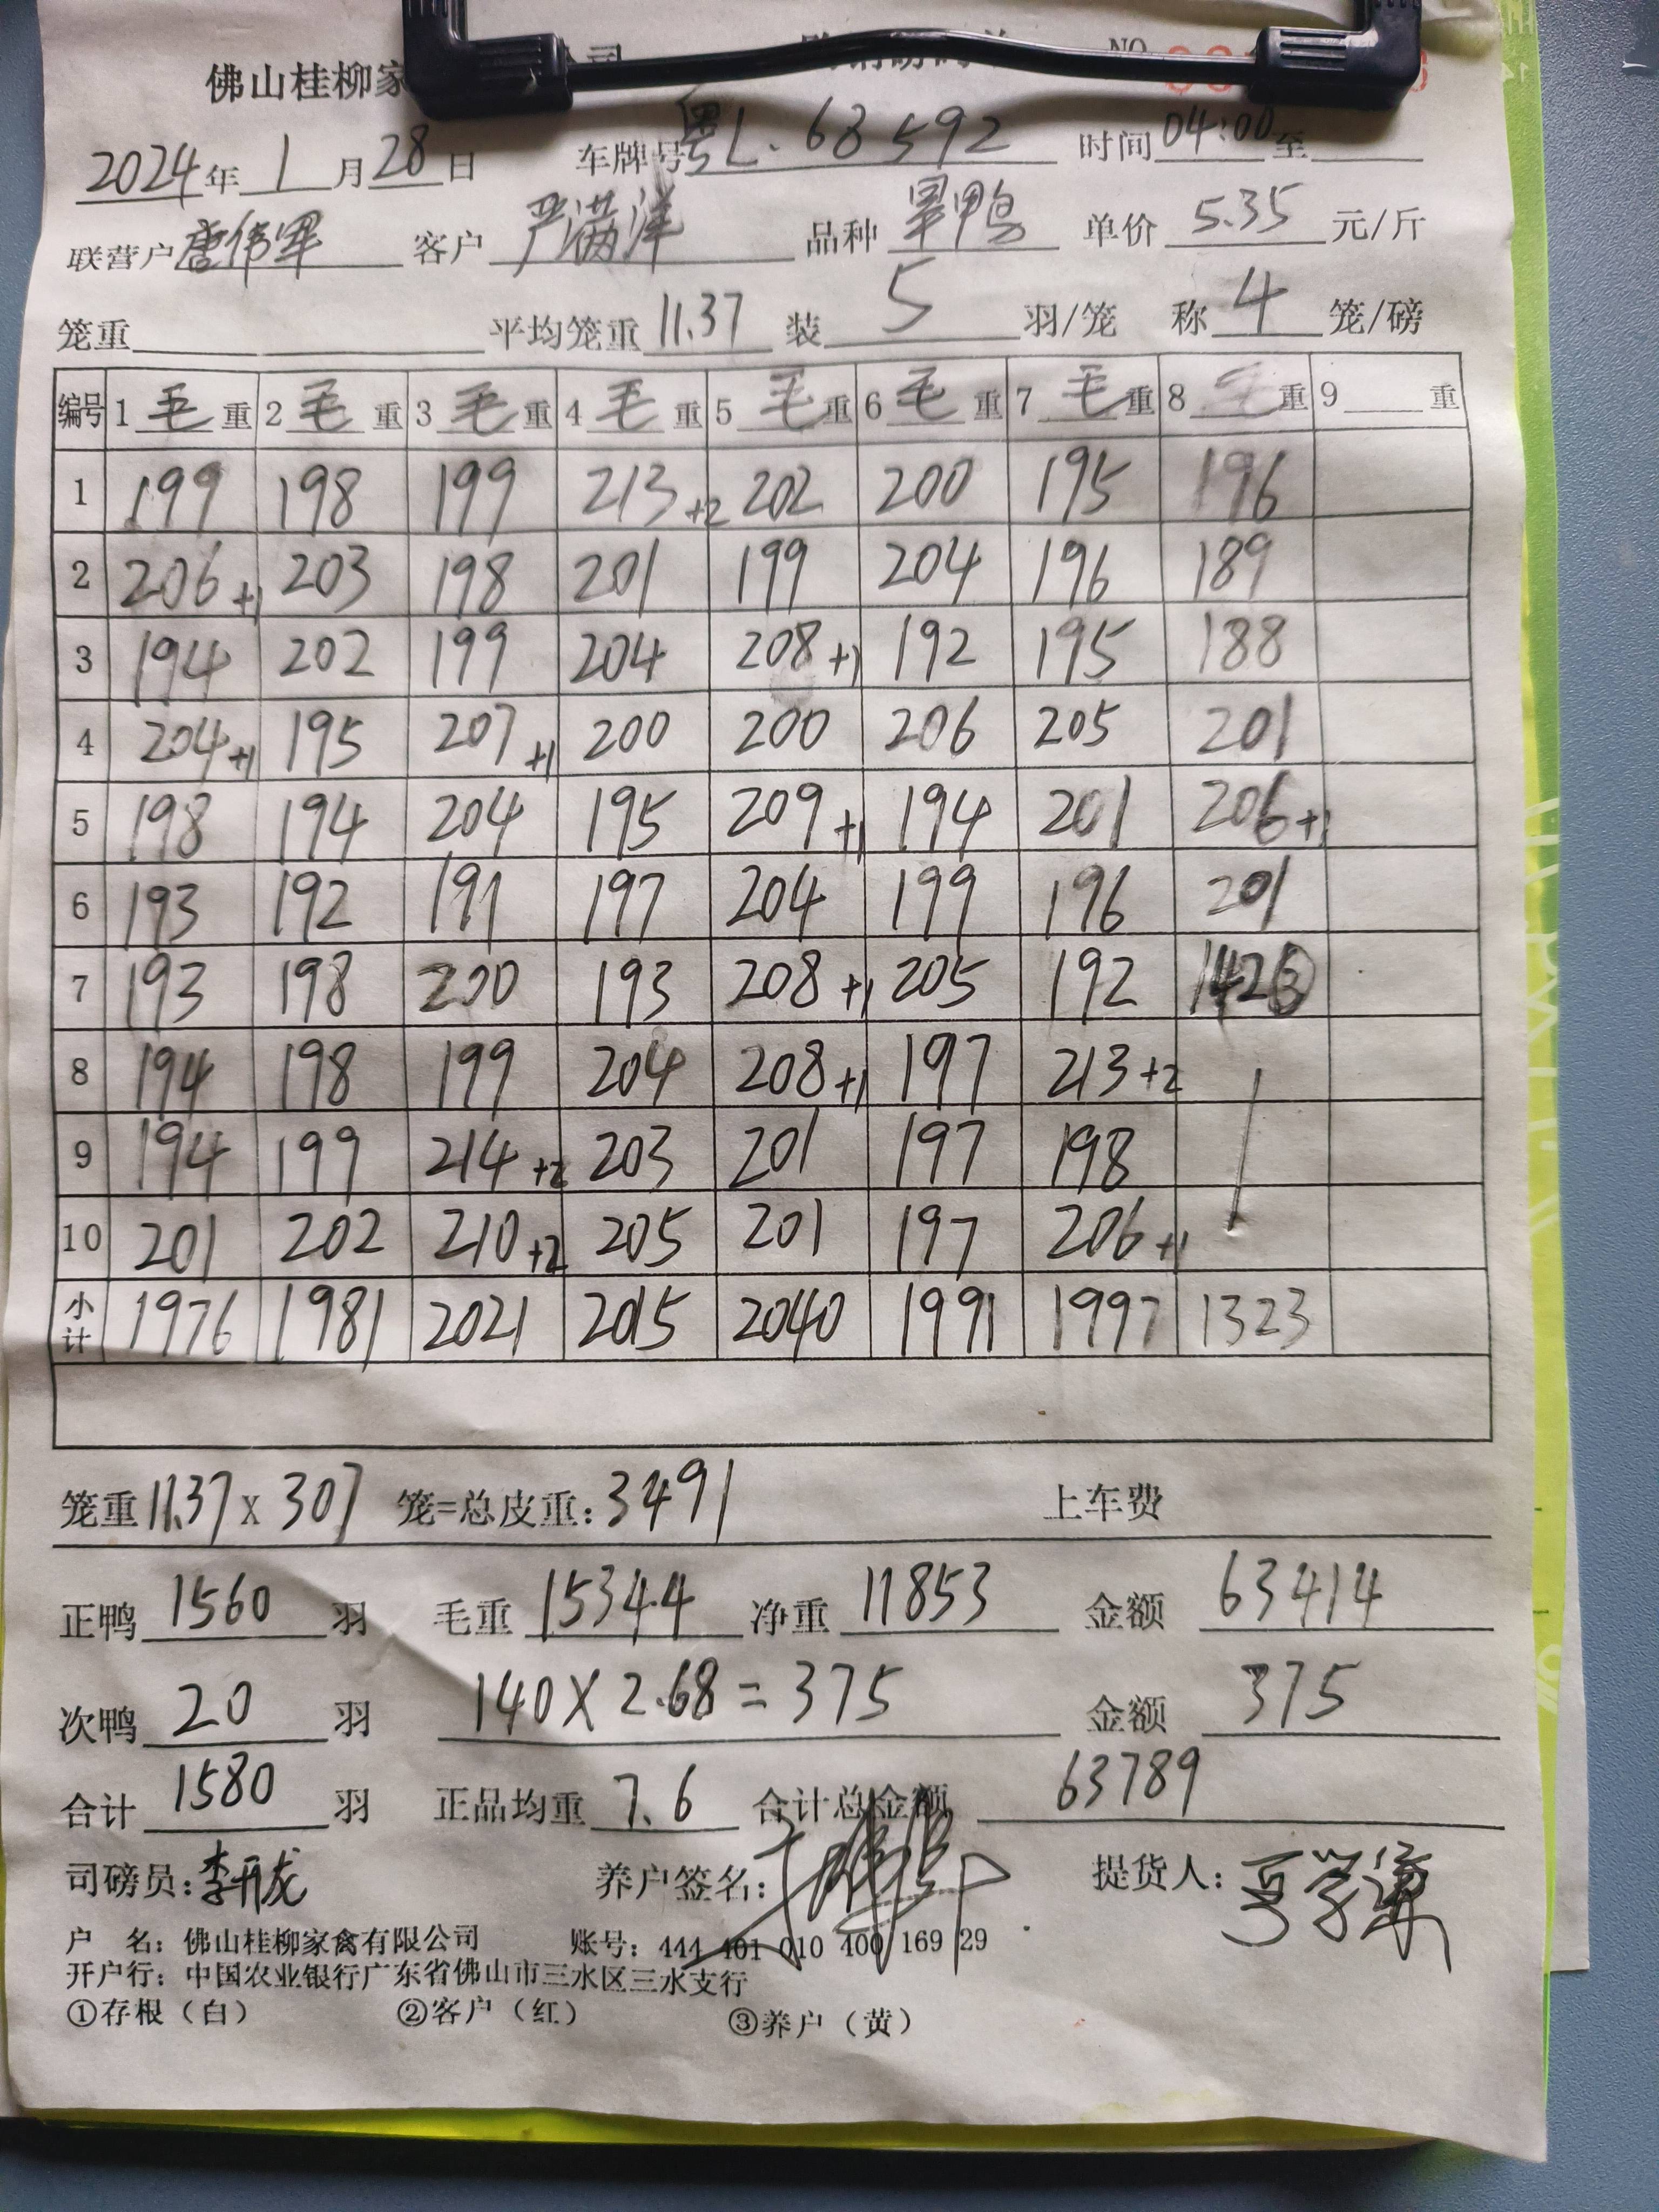 佛山桂柳家 公司 NO
2024年1月28日 车牌号粤L.68592 时间04:00至
联营户唐伟军 客户严满洋 品种旱鸭 单价5.35元/斤
笼重 平均笼重11.37 装5羽/笼 称4笼/磅
编号 1毛重 2毛重 3毛重 4毛重 5毛重 6毛重 7毛重 8毛重 9重
1 199 198 199 213+2 202 200 195 196
2 206+1 203 198 201 199 204 196 189
3 194 202 199 204 208+1 192 195 188
4 204+1 195 207+1 200 200 206 205 201
5 198 194 204 195 209+1 194 201 206+1
6 193 192 191 197 204 199 196 201
7 193 198 200 193 208+1 205 192 142③
8 194 198 199 204 208+1 197 213+2
9 194 199 214+2 203 201 197 198
10 201 202 210+2 205 201 197 206+1
小计 1976 1981 2021 2015 2040 1991 1997 1323
笼重11.37x307笼=总皮重:3491 上车费
正鸭1560羽 毛重15344 净重11853 金额63414
次鸭20羽 140X2.68=375 金额375
合计1580羽 正品均重7.6 合计总金额63789
司磅员:李开龙 养户签名: 提货人:
户 名:佛山桂柳家禽有限公司 账号:444 401 010 400 169 29
开户行:中国农业银行广东省佛山市三水区三水支行
①存根(白) ②客户(红) ③养户(黄)